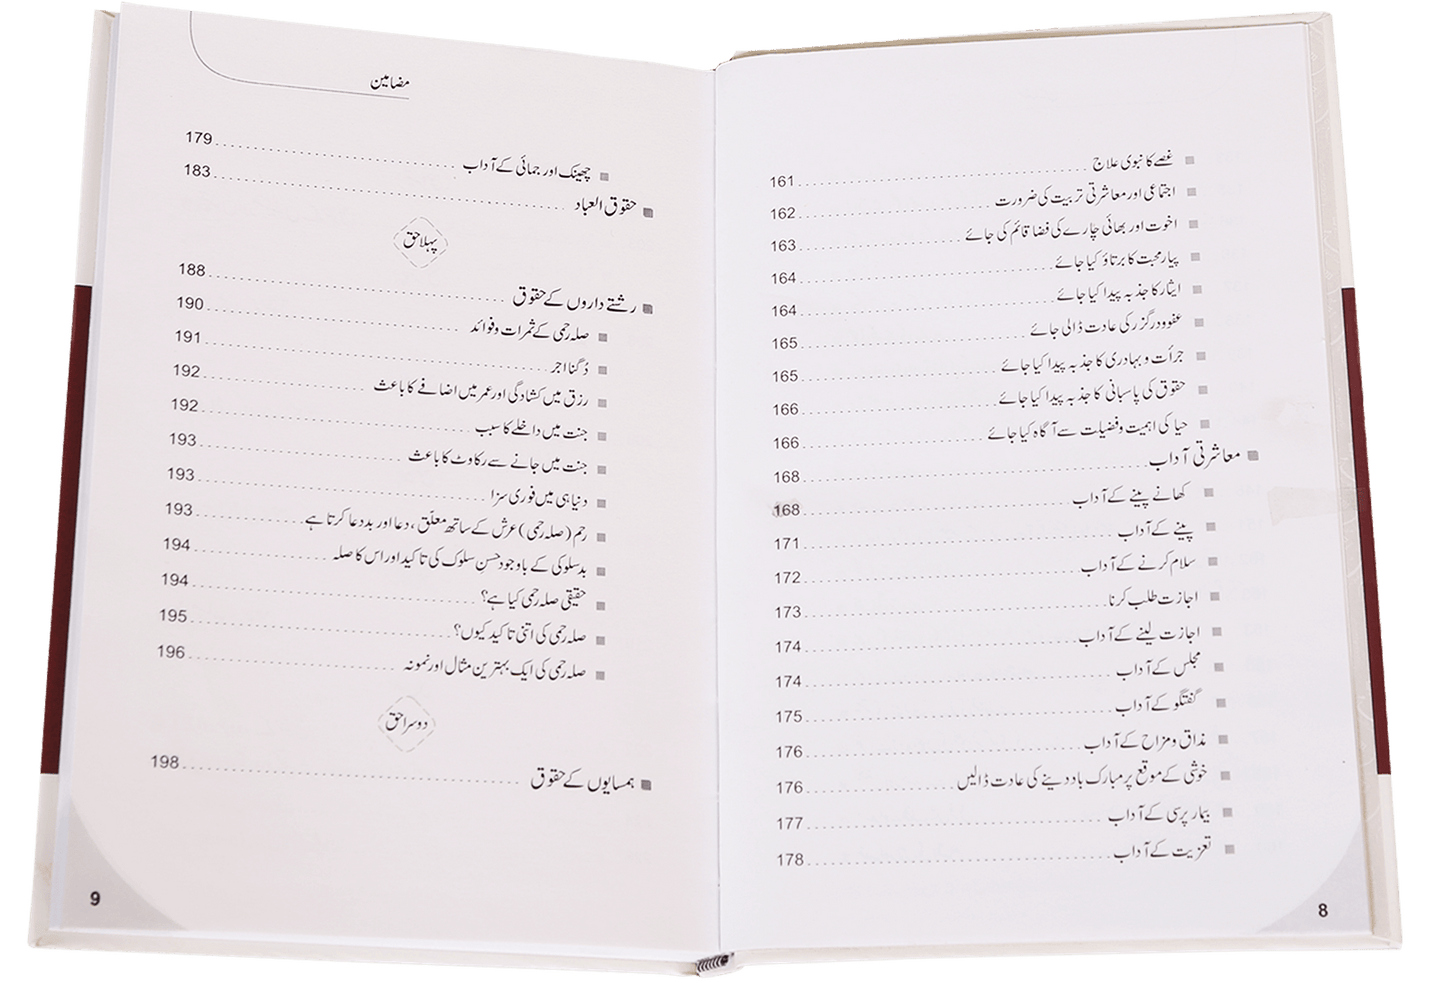 غصے کا نبوی علاج 161
اجتماعی اور معاشرتی تربیت کی ضرورت 162
اخوت اور بھائی چارے کی فضا قائم کی جائے 163
پیار محبت کا برتاؤ کیا جائے 164
ایثار کا جذبہ پیدا کیا جائے 164
عفوودرگزر کی عادت ڈالی جائے 165
جرأت و بہادری کا جذبہ پیدا کیا جائے 165
حقوق کی پاسبانی کا جذبہ پیدا کیا جائے 166
حیا کی اہمیت وفضیلت سے آگاہ کیا جائے 166
معاشرتی آداب 168
کھانے پینے کے آداب 168
پینے کے آداب 171
سلام کرنے کے آداب 172
اجازت طلب کرنا 173
اجازت لینے کے آداب 174
مجلس کے آداب 174
گفتگو کے آداب 175
مذاق ومزاح کے آداب 176
خوشی کے موقع پر مبارک باد دینے کی عادت ڈالیں 176
بیمار پرسی کے آداب 177
تعزیت کے آداب 178
8
مضامین
چھینک اور جمائی کے آداب 179
حقوق العباد 183
پہلا حق
رشتے داروں کے حقوق 188
صلہ رحمی کے ثمرات وفوائد 190
دُگنا اجر 191
رزق میں کشادگی اور عمر میں اضافے کا باعث 192
جنت میں داخلے کا سبب 192
جنت میں جانے سے رکاوٹ کا باعث 193
دنیا ہی میں فوری سزا 193
رحم (صلہ رحمی) عرش کے ساتھ معلّق، دعا اور بددعا کرتا ہے 193
بدسلوکی کے باوجود حسنِ سلوک کی تاکید اور اس کا صلہ 194
حقیقی صلہ رحمی کیا ہے؟ 194
صلہ رحمی کی اتنی تاکید کیوں؟ 195
صلہ رحمی کی ایک بہترین مثال اور نمونہ 196
دوسرا حق
ہمسایوں کے حقوق 198
9